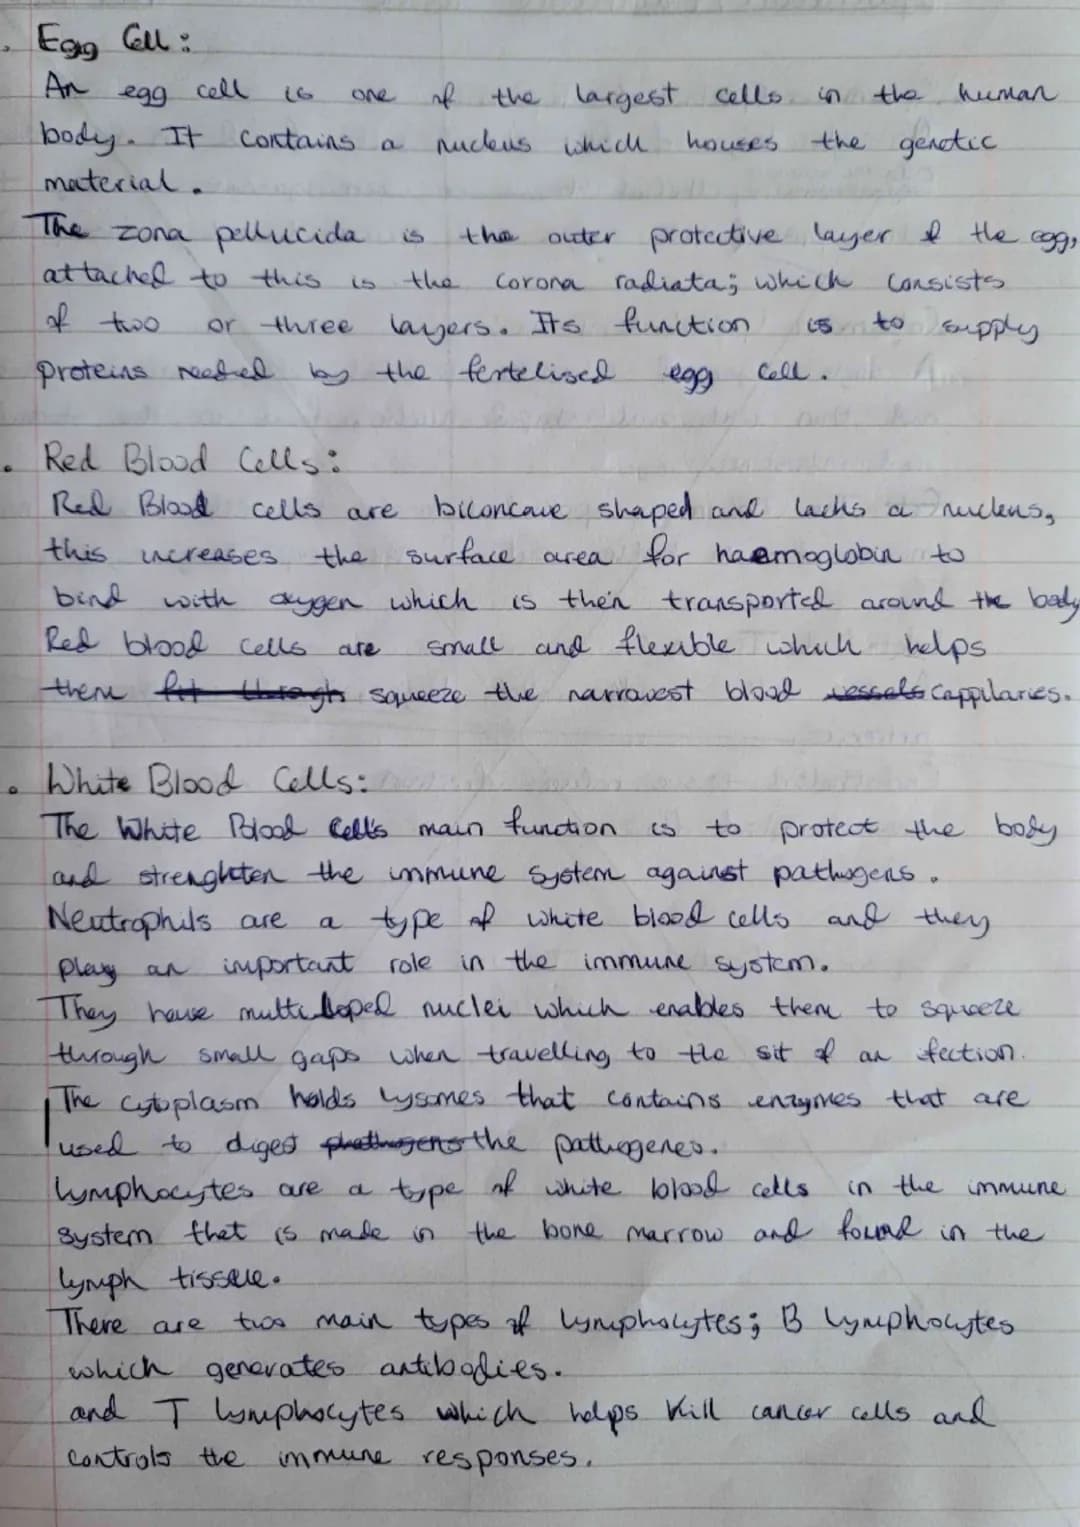 Egg Cell:
An egg cell is one of the largest cells in the human
body. It contains a nucleus which houses the genetic
material.
The zona pellucida is the outer protective layer of the egg,
attached to this is the corona radiata; which consists
of two or three layers. Its function is to supply
proteins needed by the fertelised egg cell.
Red Blood Cells:
Red Blood cells are biconcave shaped and lacks a nucleus,
this increases the surface area for haemoglobin to
bind with oxygen which is then transported around the body
Red blood cells are small and flexible which helps
them fit through squeeze the narrowest blood vessels cappilaries.
White Blood Cells:
The White Blood Cell's main function is to protect the body
and strenghten the immune system against pathogens.
Neutrophils are a type of white blood cells and they
play an important role in the immune system.
They have multi loped nuclei which enables them to squeeze
through small gaps when travelling to the sit of an ifection.
The cytoplasm holds lysomes that contains enzymes that are
used to digest phathogens the pathogenes.
lymphocytes are a type of white blood cells in the immune
system that is made in the bone marrow and found in the
lymph tissue.
There are two main types of lymphocytes; B lymphocytes
which generates antibodies.
and T lymphocytes which helps kill cancer cells and
controls the immune responses.